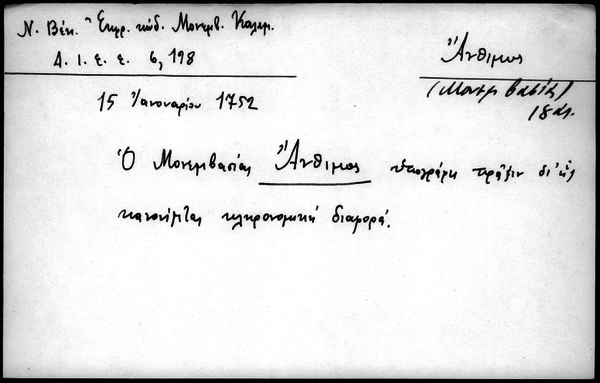 Ν. Βέη. Ἔγγρ. κώδ. Μονεμβ. Καλαμ.
Δ. Ι. Ε. Ε. 6, 198
Ἄνθιμος
(Μονεμβασίας)
18 αἰ.
15 Ἰανουαρίου 1752
Ὁ Μονεμβασίας Ἄνθιμος ὑπογράφει πρᾶξιν δι' ἧς
κανονίζεται κληρονομική διαφορά.